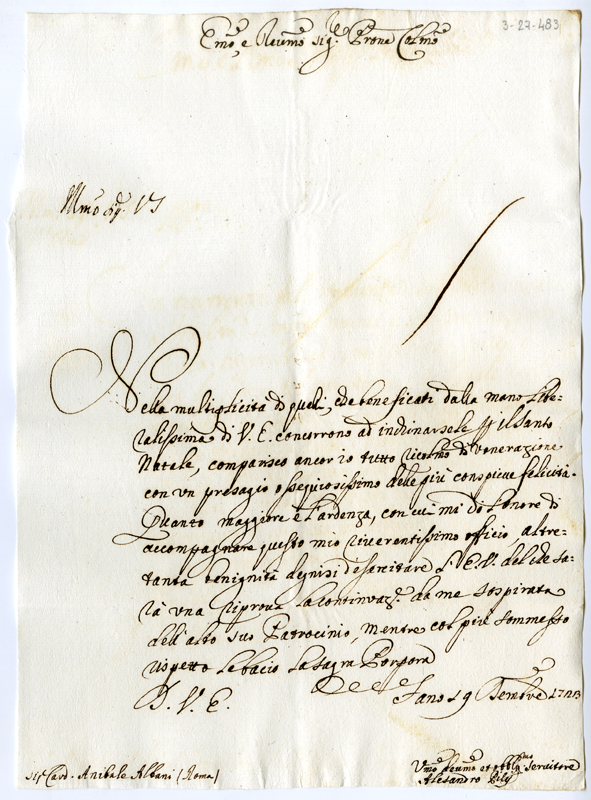 3-27-483
Emo, e Reumo Sigre Prone Colmo
Nella multiplicità di quelli, che beneficati dalla mano libe=
ralissima di V. E. concorrono ad inchinarsele p il Santo
Natale, comparisco ancor io tutto ricolmo di venerazione
con vn presagio ossequiosissimo delle più conspicue felicità.
Quanto maggiore è l'ardenza, con cui mi dò l'onore di
accompagnare questo mio riuerentissimo officio, altre=
tanta benignità degnisi d'esercitare l'E.V. del che sa=
rà vna riproua la continvaz.e da me sospirata
dell'alto suo Patrocinio, mentre col più sommesso
rispetto le bacio la Sagra Porpora
D. V. E.
Fano 19 Xembre 1723
Sigr Card. Anibale Albani (Roma)
Vmo Deumo et obblgmo Servitore
Alesandro